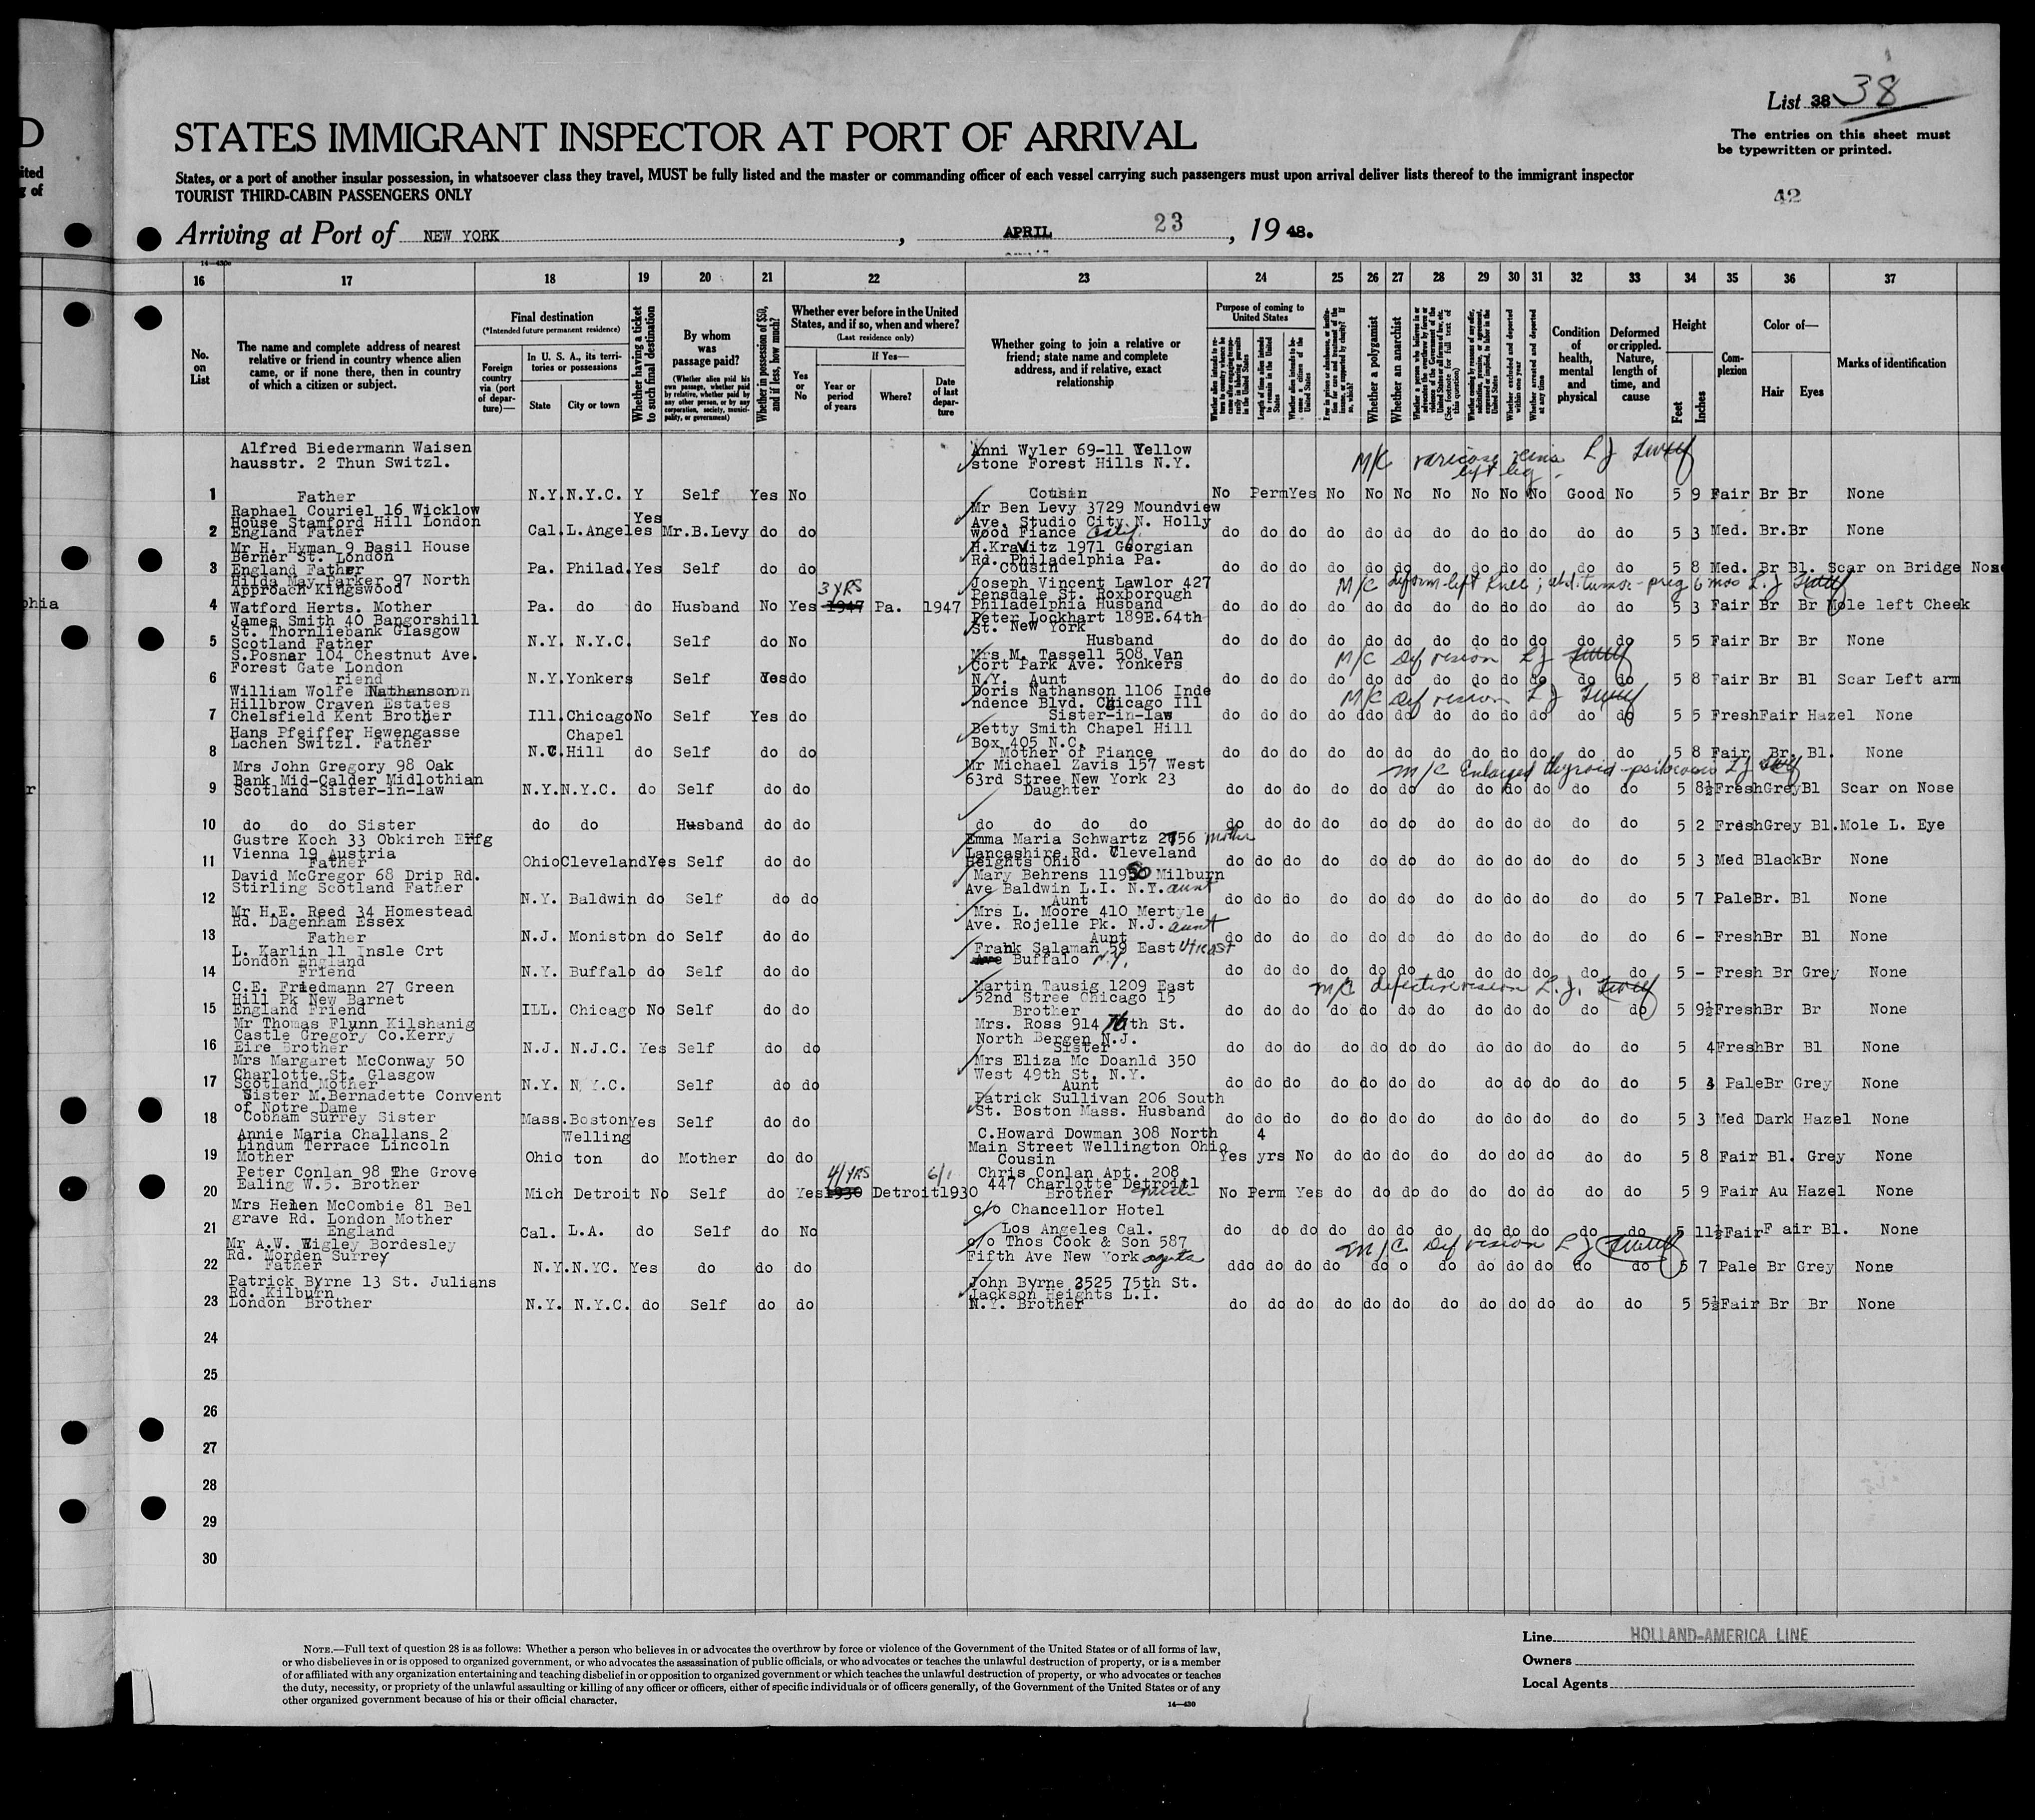 D
ited
g of
phia
r
List 38 38
The entries on this sheet must
be typewritten or printed.
42
STATES IMMIGRANT INSPECTOR AT PORT OF ARRIVAL
States, or a port of another insular possession, in whatsoever class they travel, MUST be fully listed and the master or commanding officer of each vessel carrying such passengers must upon arrival deliver lists thereof to the immigrant inspector
TOURIST THIRD-CABIN PASSENGERS ONLY
Arriving at Port of NEW YORK , APRIL 23 , 19 48.
16 17 18 19 20 21 22 23 24 25 26 27 28 29 30 31 32 33 34 35 36 37
No. on List
The name and complete address of nearest relative or friend in country whence alien came, or if none there, then in country of which a citizen or subject.
Final destination
(*Intended future permanent residence)
Foreign country via (port of departure)—
In U. S. A., its territories or possessions
State City or town
Whether having a ticket to such final destination
By whom was passage paid?
(Whether alien paid his own passage, whether paid by relative, whether paid by any other person, or by any corporation, society, municipality, or government)
Whether in possession of $50, and if less, how much?
Whether ever before in the United States, and if so, when and where?
(Last residence only)
Yes or No
If Yes—
Year or period of years
Where?
Date of last departure
Whether going to join a relative or friend; state name and complete address, and if relative, exact relationship
Purpose of coming to United States
Whether a polygamist
Whether an anarchist
Condition of health, mental and physical
Deformed or crippled. Nature, length of time, and cause
Height
Feet Inches
Complexion
Color of—
Hair Eyes
Marks of identification
Alfred Biedermann Waisen Anni Wyler 69-11 Yellow
hausstr. 2 Thun Switzl. stone Forest Hills N.Y. M/C varicose veins left leg
1 Father N.Y. N.Y.C. Y Self Yes No Cousin No Perm Yes No No No No No No No Good No 5 9 Fair Br Br None
Raphael Couriel 16 Wicklow Mr Ben Levy 3729 Moundview
House Stamford Hill London Yes Ave. Studio City N. Holly
2 England Father Cal. L.Angeles Mr.B.Levy do do wood Fiance Calif. do do do do do do do do do do do do 5 3 Med. Br. Br None
Mr H. Hyman 9 Basil House H.Kravitz 1971 Georgian
Berner St. London Rd. Philadelphia Pa.
3 England Father Pa. Philad. Yes Self do do Cousin do do do do do do do do do do do do 5 8 Med. Br Bl. Scar on Bridge Nose
Hilda May Parker 97 North Joseph Vincent Lawlor 427
Approach Kingswood 3 YRS Pensdale St. Roxborough M/C deform-left knee;
4 Watford Herts. Mother Pa. do do Husband No Yes 1947 Pa. 1947 Philadelphia Husband do do do do do do do do do do do do 5 3 Fair Br Br Mole left Cheek
James Smith 40 Bangorshill Peter Lockhart 189E.64th
St. Thornliebank Glasgow St. New York
5 Scotland Father N.Y. N.Y.C. Self do No Husband do do do do do do do do do do do do 5 5 Fair Br Br None
S.Posnar 104 Chestnut Ave. Mrs M. Tassell 508 Van
Forest Gate London Cort Park Ave. Yonkers M/C Def vision
6 riend N.Y. Yonkers Self Yes do N.Y. Aunt do do do do do do do do do do do do 5 8 Fair Br Bl Scar Left arm
William Wolfe Nathanson Doris Nathanson 1106 Inde
Hillbrow Craven Estates ndence Blvd. Chicago Ill M/C Def vision
7 Chelsfield Kent Brother Ill. Chicago No Self Yes do Sister-in-law do do do do do do do do do do do do 5 5 Fresh Fair Hazel None
Hans Pfeiffer Hewengasse Chapel Betty Smith Chapel Hill
Lachen Switzl. Father Box 405 N.C.
8 N.C. Hill do Self do do Mother of Fiance do do do do do do do do do do do do 5 8 Fair Br. Bl. None
Mrs John Gregory 98 Oak Mr Michael Zavis 157 West
Bank Mid-Calder Midlothian 63rd Stree New York 23 M/C Enlarged thyroid
9 Scotland Sister-in-law N.Y. N.Y.C. do Self do do Daughter do do do do do do do do do do do do 5 8½ Fresh Grey Bl Scar on Nose
10 do do do Sister do do Husband do do do do do do do do do do do do do do do do do do do 5 2 Fresh Grey Bl. Mole L. Eye
Gustre Koch 33 Obkirch Erfg Emma Maria Schwartz 2756 mother
Vienna 19 Austria Lancashire Rd. Cleveland
11 Father Ohio Cleveland Yes Self do do Heights Ohio do do do do do do do do do do do do 5 3 Med Black Br None
David McGregor 68 Drip Rd. Mary Behrens 11950 Milburn
Stirling Scotland Father Ave Baldwin L.I. N.Y. aunt
12 N.Y. Baldwin do Self do do Aunt do do do do do do do do do do do do 5 7 Pale Br. Bl None
Mr H.E. Reed 34 Homestead Mrs L. Moore 410 Mertyle
Rd. Dagenham Essex Ave. Rojelle Pk. N.J. aunt
13 Father N.J. Moniston do Self do do Aunt do do do do do do do do do do do do 6 - Fresh Br Bl None
L. Karlin 11 Insle Crt Frank Salaman 59 East
London England Ave Buffalo N.Y.
14 Friend N.Y. Buffalo do Self do do do do do do do do do do do do do do 5 - Fresh Br Grey None
C.E. Friedmann 27 Green Martin Tausig 1209 East M/C defective vision L.J.
Hill Pk New Barnet 52nd Stree Chicago 15
15 England Friend ILL. Chicago No Self do do Brother do do do do do do do do do do do do 5 9½ Fresh Br Br None
Mr Thomas Flynn Kilshanig Mrs. Ross 914 76th St.
Castle Gregory Co.Kerry North Bergen N.J.
16 Eire Brother N.J. N.J.C. Yes Self do do Sister do do do do do do do do do do do do 5 4 Fresh Br Bl None
Mrs Margaret McConway 50 Mrs Eliza Mc Doanld 350
Charlotte St. Glasgow West 49th St. N.Y.
17 Scotland Mother N.Y. N.Y.C. Self do do Aunt do do do do do do do do do do do do 5 3 Pale Br Grey None
Sister M.Bernadette Convent Patrick Sullivan 206 South
of Notre Dame St. Boston Mass. Husband
18 Cobham Surrey Sister Mass. Boston Yes Self do do do do do do do do do do do do do do 5 3 Med Dark Hazel None
Annie Maria Challans 2 Welling C.Howard Dowman 308 North 4
Lindum Terrace Lincoln Main Street Wellington Ohio
19 Mother Ohio ton do Mother do do Cousin Yes yrs No do do do do do do do do do 5 8 Fair Bl. Grey None
Peter Conlan 98 The Grove 4/YRS 6/1 Chris Conlan Apt. 208
Ealing W.5. Brother 447 Charlotte Detroitl
20 Mich Detroit No Self do Yes 1930 Detroit 1930 Brother No Perm Yes do do do do do do do do do 5 9 Fair Au Hazel None
Mrs Helen McCombie 81 Bel c/o Chancellor Hotel
grave Rd. London Mother
21 England Cal. L.A. do Self do No Los Angeles Cal. do do do do do do do do do do do do 5 11½ Fair F air Bl. None
Mr A.W. Wigley Bordesley c/o Thos Cook & Son 587 M/C Def vision
Rd. Morden Surrey Fifth Ave New York agents
22 Father N.Y. N.YC. Yes do do do ddo do do do do o do do do do do do 5 7 Pale Br Grey None
Patrick Byrne 13 St. Julians John Byrne 3525 75th St.
Rd. Kilburn Jackson Heights L.I.
23 London Brother N.Y. N.Y.C. do Self do do N.Y. Brother do do do do do do do do do do do do 5 5½ Fair Br Br None
24
25
26
27
28
29
30
NOTE.—Full text of question 28 is as follows: Whether a person who believes in or advocates the overthrow by force or violence of the Government of the United States or of all forms of law,
or who disbelieves in or is opposed to organized government, or who advocates the assassination of public officials, or who advocates or teaches the unlawful destruction of property, or is a member
of or affiliated with any organization entertaining and teaching disbelief in or opposition to organized government or which teaches the unlawful destruction of property, or who advocates or teaches
the duty, necessity, or propriety of the unlawful assaulting or killing of any officer or officers, either of specific individuals or of officers generally, of the Government of the United States or of any
other organized government because of his or their official character.
14—430
Line HOLLAND-AMERICA LINE
Owners
Local Agents